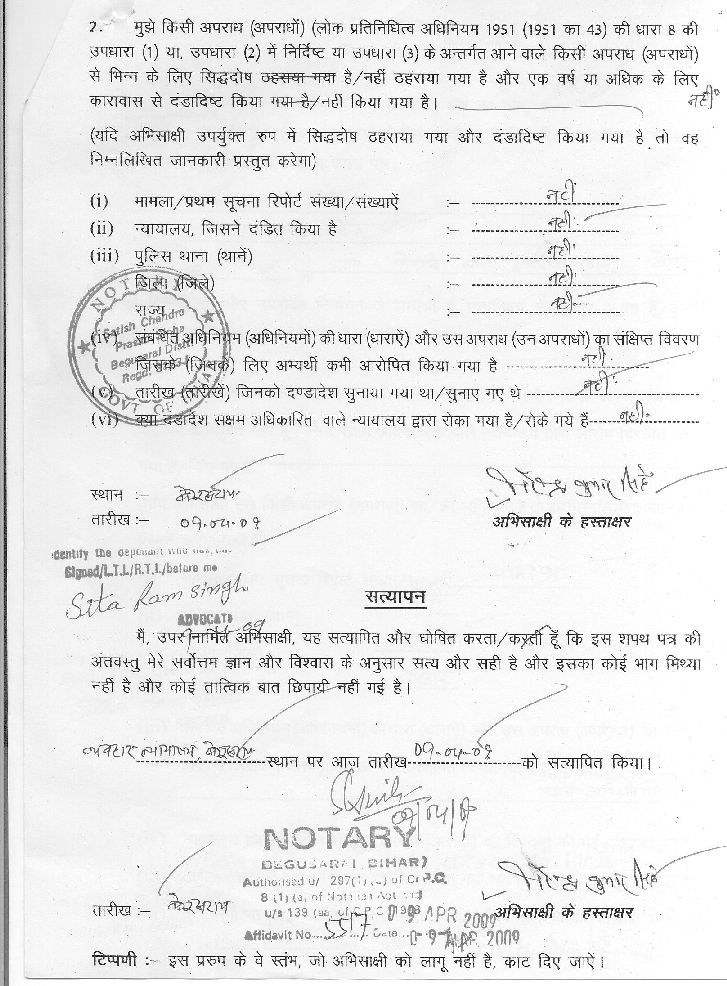 2. मुझे किसी अपराध (अपराधों) (लोक प्रतिनिधित्व अधिनियम 1951 (1951 का 43) की धारा 8 की
उपधारा (1) या, उपधारा (2) में निर्दिष्ट या उपधारा (3) के अन्तर्गत आने वाले किसी अपराध (अपराधों)
से भिन्न के लिए सिद्धदोष ठहराया गया है/नहीं ठहराया गया है और एक वर्ष या अधिक के लिए
कारावास से दंडादिष्ट किया गया है/नहीं किया गया है। नहीं
(यदि अभिसाक्षी उपर्युक्त रुप में सिद्धदोष ठहराया गया और दंडादिष्ट किया गया है तो वह
निम्नलिखित जानकारी प्रस्तुत करेगा)
(i) मामला/प्रथम सूचना रिपोर्ट संख्या/संख्याऐं :- नहीं
(ii) न्यायालय, जिसने दंडित किया है :- नहीं
(iii) पुलिस थाना (थानें) :- नहीं
जिला (जिले) :- नहीं
राज्य :- नहीं
(iv) संबंधित अधिनियम (अधिनियमों) की धारा (धाराऐं) और उस अपराध (उन अपराधों) का संक्षिप्त विवरण
जिसके (जिनके) लिए अभ्यर्थी कभी आरोपित किया गया है नहीं
(v) तारीख (तारीखें) जिनको दण्डादेश सुनाया गया था/सुनाए गए थे नहीं
(vi) क्या दंडादेश सक्षम अधिकारिता वाले न्यायालय द्वारा रोका गया है/रोके गये हैं नहीं
NOTARY
Satish Chandra
Begusarai Distt
GOVT OF INDIA
स्थान :-
तारीख :- 09.04.09
अभिसाक्षी के हस्ताक्षर
Identify the deponent who
Signed/L.T.I./R.T.I./before me
Sita Ram Singh
ADVOCATE
सत्यापन
मैं, उपर नामित अभिसाक्षी, यह सत्यापित और घोषित करता/करती हूँ कि इस शपथ पत्र की
अंतवस्तु मेरे सर्वोत्तम ज्ञान और विश्वास के अनुसार सत्य और सही है और इसका कोई भाग मिथ्या
नहीं है और कोई तात्विक बात छिपायी नहीं गई है।
स्थान पर आज तारीख 09.04.09 को सत्यापित किया।
09/04/09
NOTARY
BEGUSARAI, BIHAR)
Authorised u/ 297(1) of Cr.P.C.
8 (1) (a) of Notaries Act
u/s 139 C.P.C. 1908
09 APR 2009
Affidavit No. Date 09 APR 2009
तारीख :-
अभिसाक्षी के हस्ताक्षर
टिप्पणी :- इस प्ररुप के वे स्तंभ, जो अभिसाक्षी को लागू नहीं है, काट दिए जाऐं।